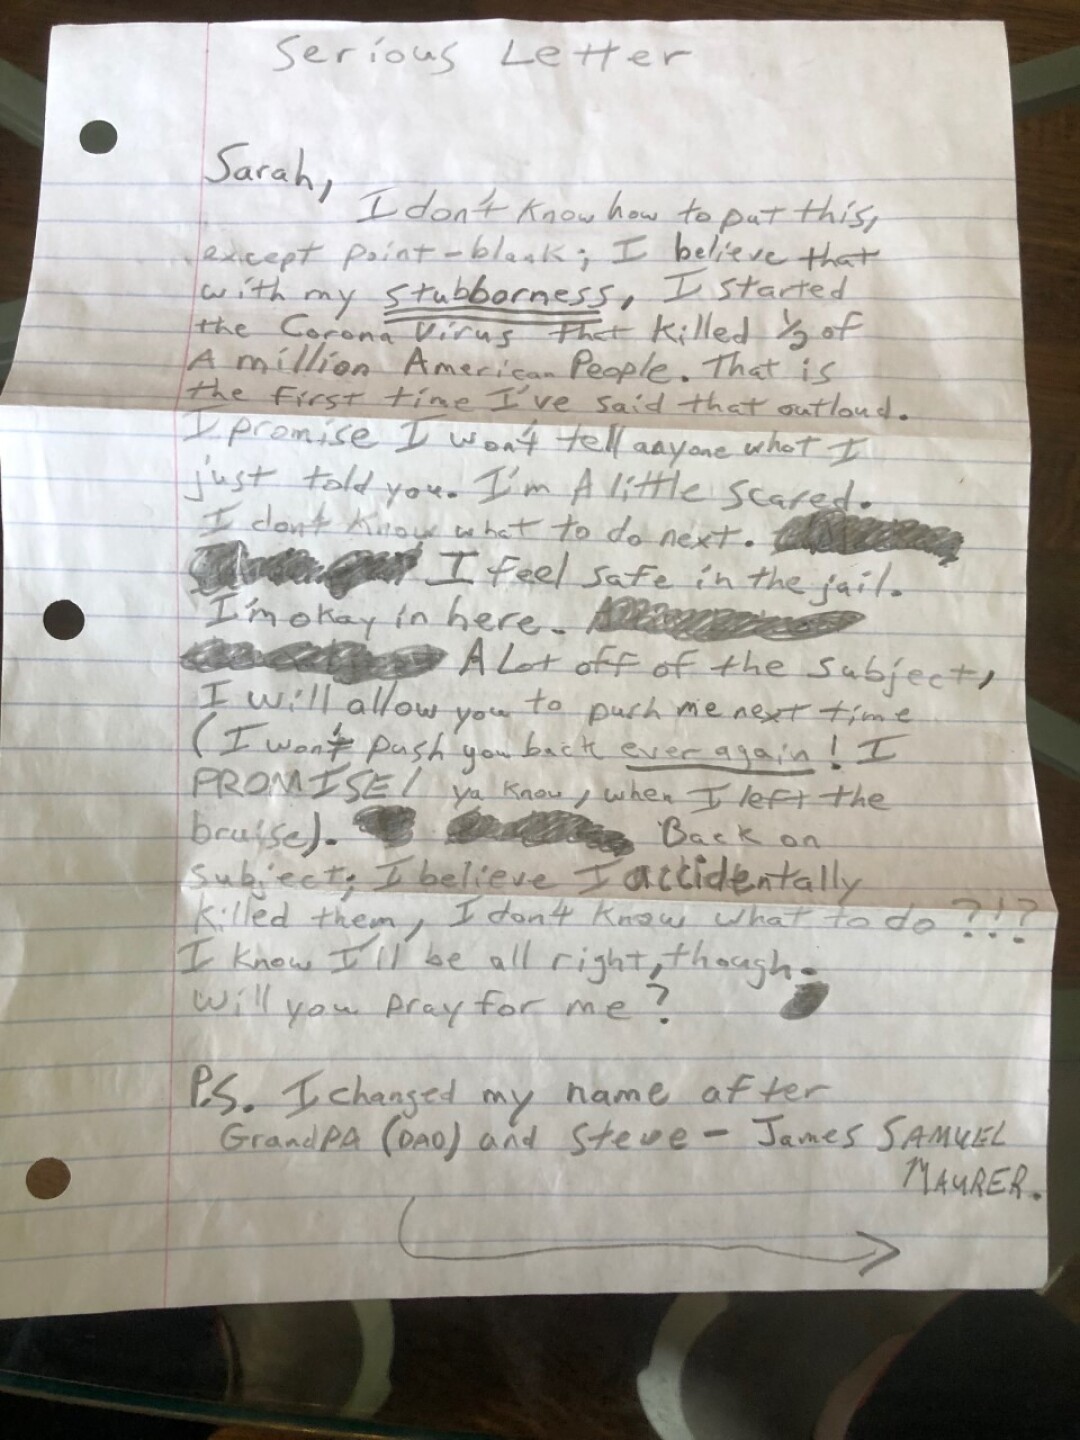 Serious Letter
Sarah,
I don't know how to put this,
except point-blank; I believe that
with my stubborness, I started
the Corona Virus that killed 1/2 of
A million American People. That is
the first time I've said that outloud.
I promise I won't tell anyone what I
just told you. I'm A little scared.
I don't know what to do next.
I feel safe in the jail.
I'm okay in here.
A Lot off of the subject,
I will allow you to push me next time
(I won't push you back ever again! I
PROMISE! ya know, when I left the
bruise). Back on
subject; I believe I accidentally
killed them, I don't know what to do ?!?
I know I'll be all right, though.
Will you pray for me?
P.S. I changed my name after
GrandPA (DAD) and Steve - James SAMUEL
MAURER.